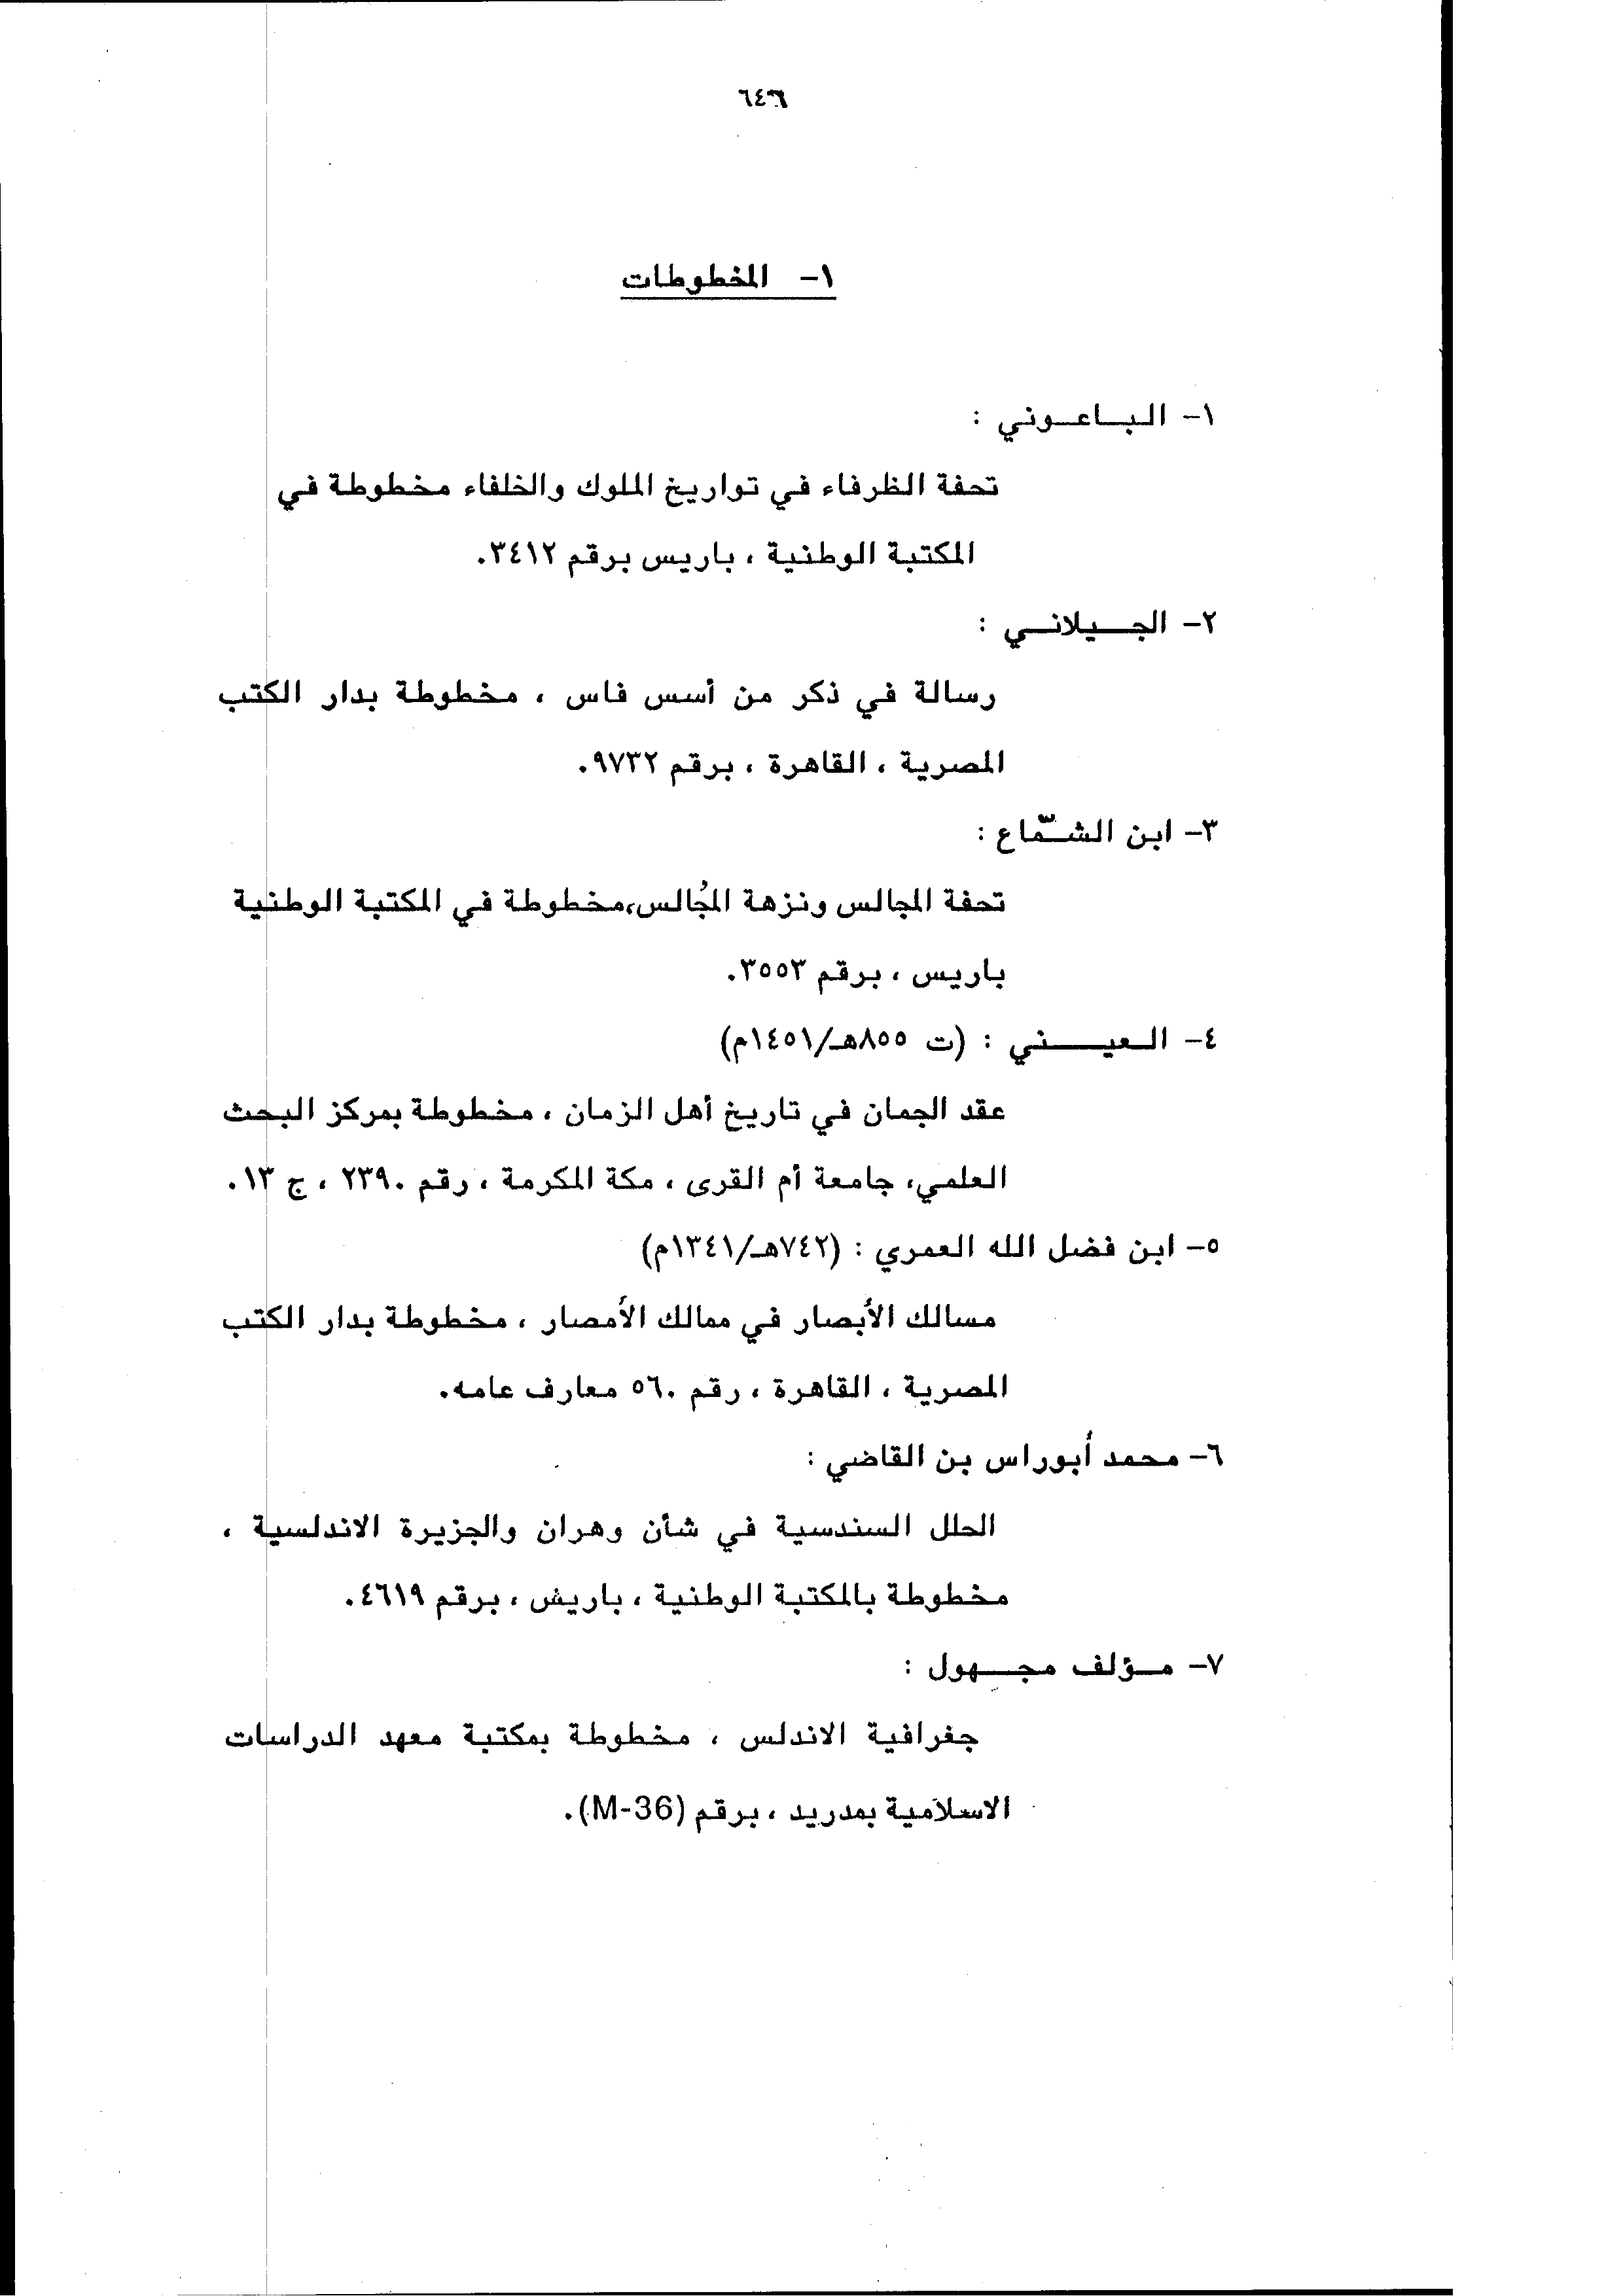 ٦٤٦
١- المخطوطات
١- الباعوني :
تحفة الظرفاء في تواريخ الملوك والخلفاء مخطوطة في
المكتبة الوطنية ، باريس برقم ٣٤١٢.
٢- الجيلاني :
رسالة في ذكر من أسس فاس ، مخطوطة بدار الكتب
المصرية ، القاهرة ، برقم ٩٧٣٢.
٣- ابن الشمّاع :
تحفة المجالس ونزهة المُجالس،مخطوطة في المكتبة الوطنية
باريس ، برقم ٣٥٥٣.
٤- العيني : (ت ٨٥٥هـ/١٤٥١م)
عقد الجمان في تاريخ أهل الزمان ، مخطوطة بمركز البحث
العلمي، جامعة أم القرى ، مكة المكرمة ، رقم ٢٣٩٠ ، ج ١٣.
٥- ابن فضل الله العمري : (٧٤٢هـ/١٣٤١م)
مسالك الأبصار في ممالك الأمصار ، مخطوطة بدار الكتب
المصرية ، القاهرة ، رقم ٥٦٠ معارف عامه.
٦- محمد أبوراس بن القاضي :
الحلل السندسية في شأن وهران والجزيرة الاندلسية ،
مخطوطة بالمكتبة الوطنية ، باريس ، برقم ٤٦١٩.
٧- مؤلف مجهول :
جغرافية الاندلس ، مخطوطة بمكتبة معهد الدراسات
الاسلامية بمدريد ، برقم (M-36).